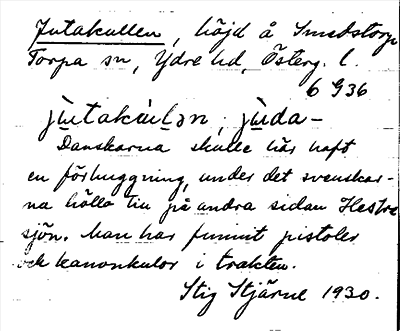 Jutakullen, höjd å Smedstorp
Torpa sn, Ydre hd, Österg. l.
6 G 36
jùtakúlən, jùda-
Danskarna skulle här haft
en förhuggning, under det svenskar-
na höllo till på andra sidan Hestra
sjön. Man har funnit pistoler
och kanonkulor i trakten.
Stig Stjärne 1930.